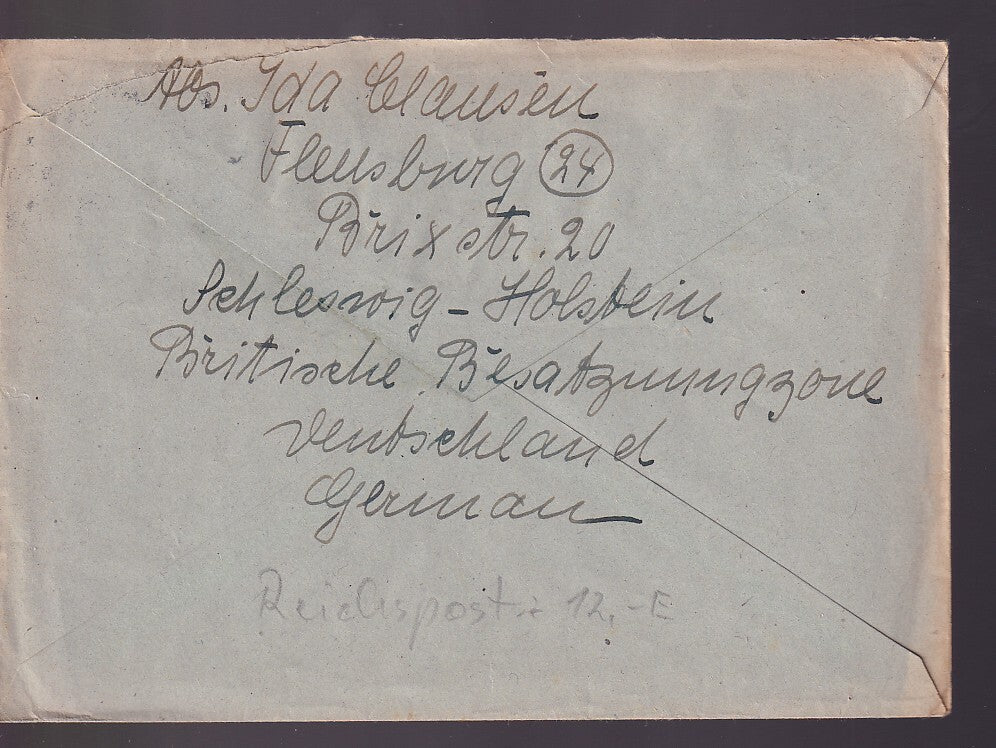 Abs. Ida Clausen
Flensburg (24)
Brixstr. 20
Schleswig-Holstein
Britische Besatzunungzone
Deutschland
German
Reichspost + 12,-E